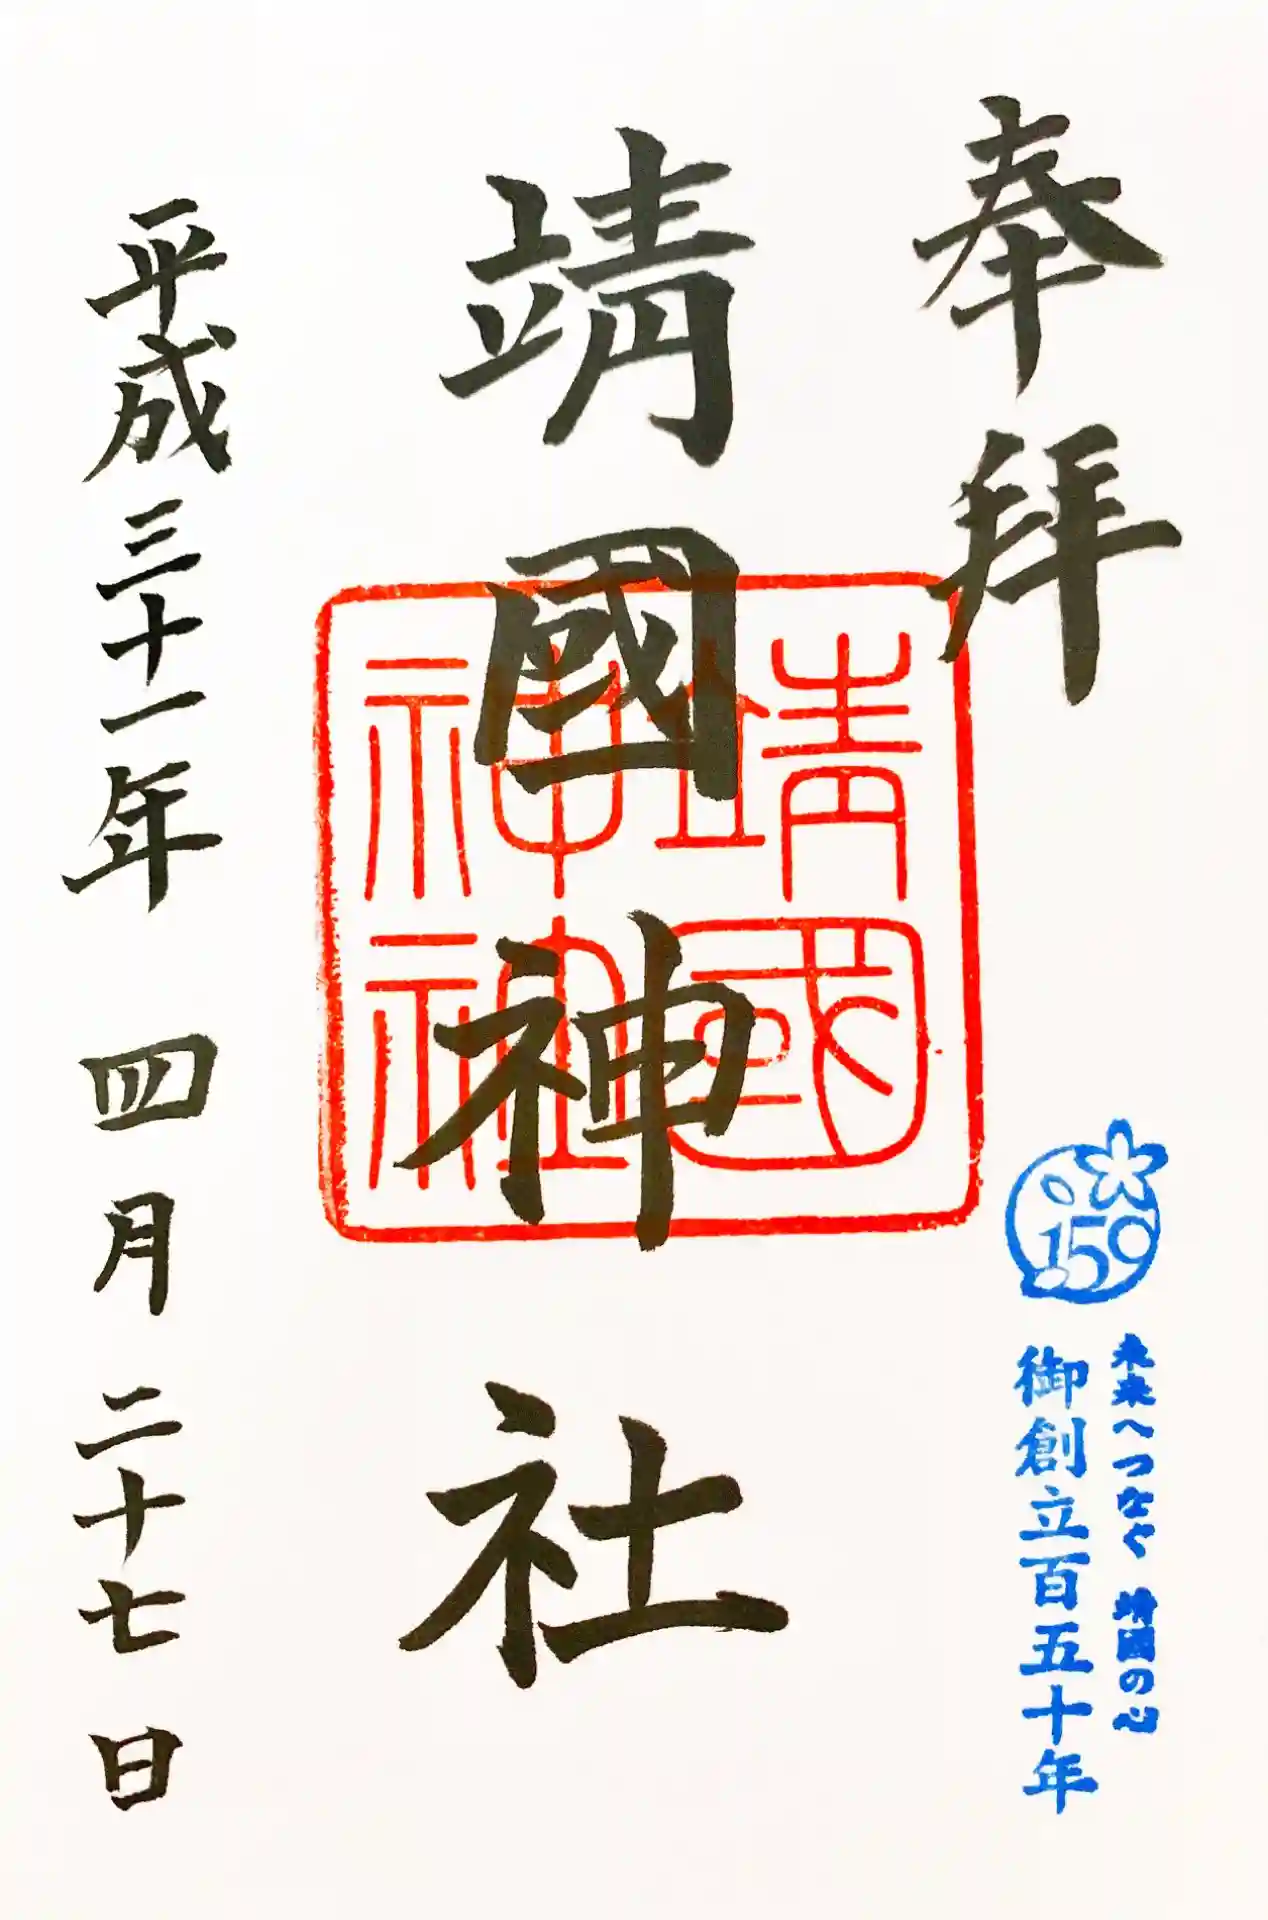 奉拝
159
未来へつなぐ 靖國の心
御創立百五十年
靖國神社
靖國
神社
平成三十一年 四月 二十七日